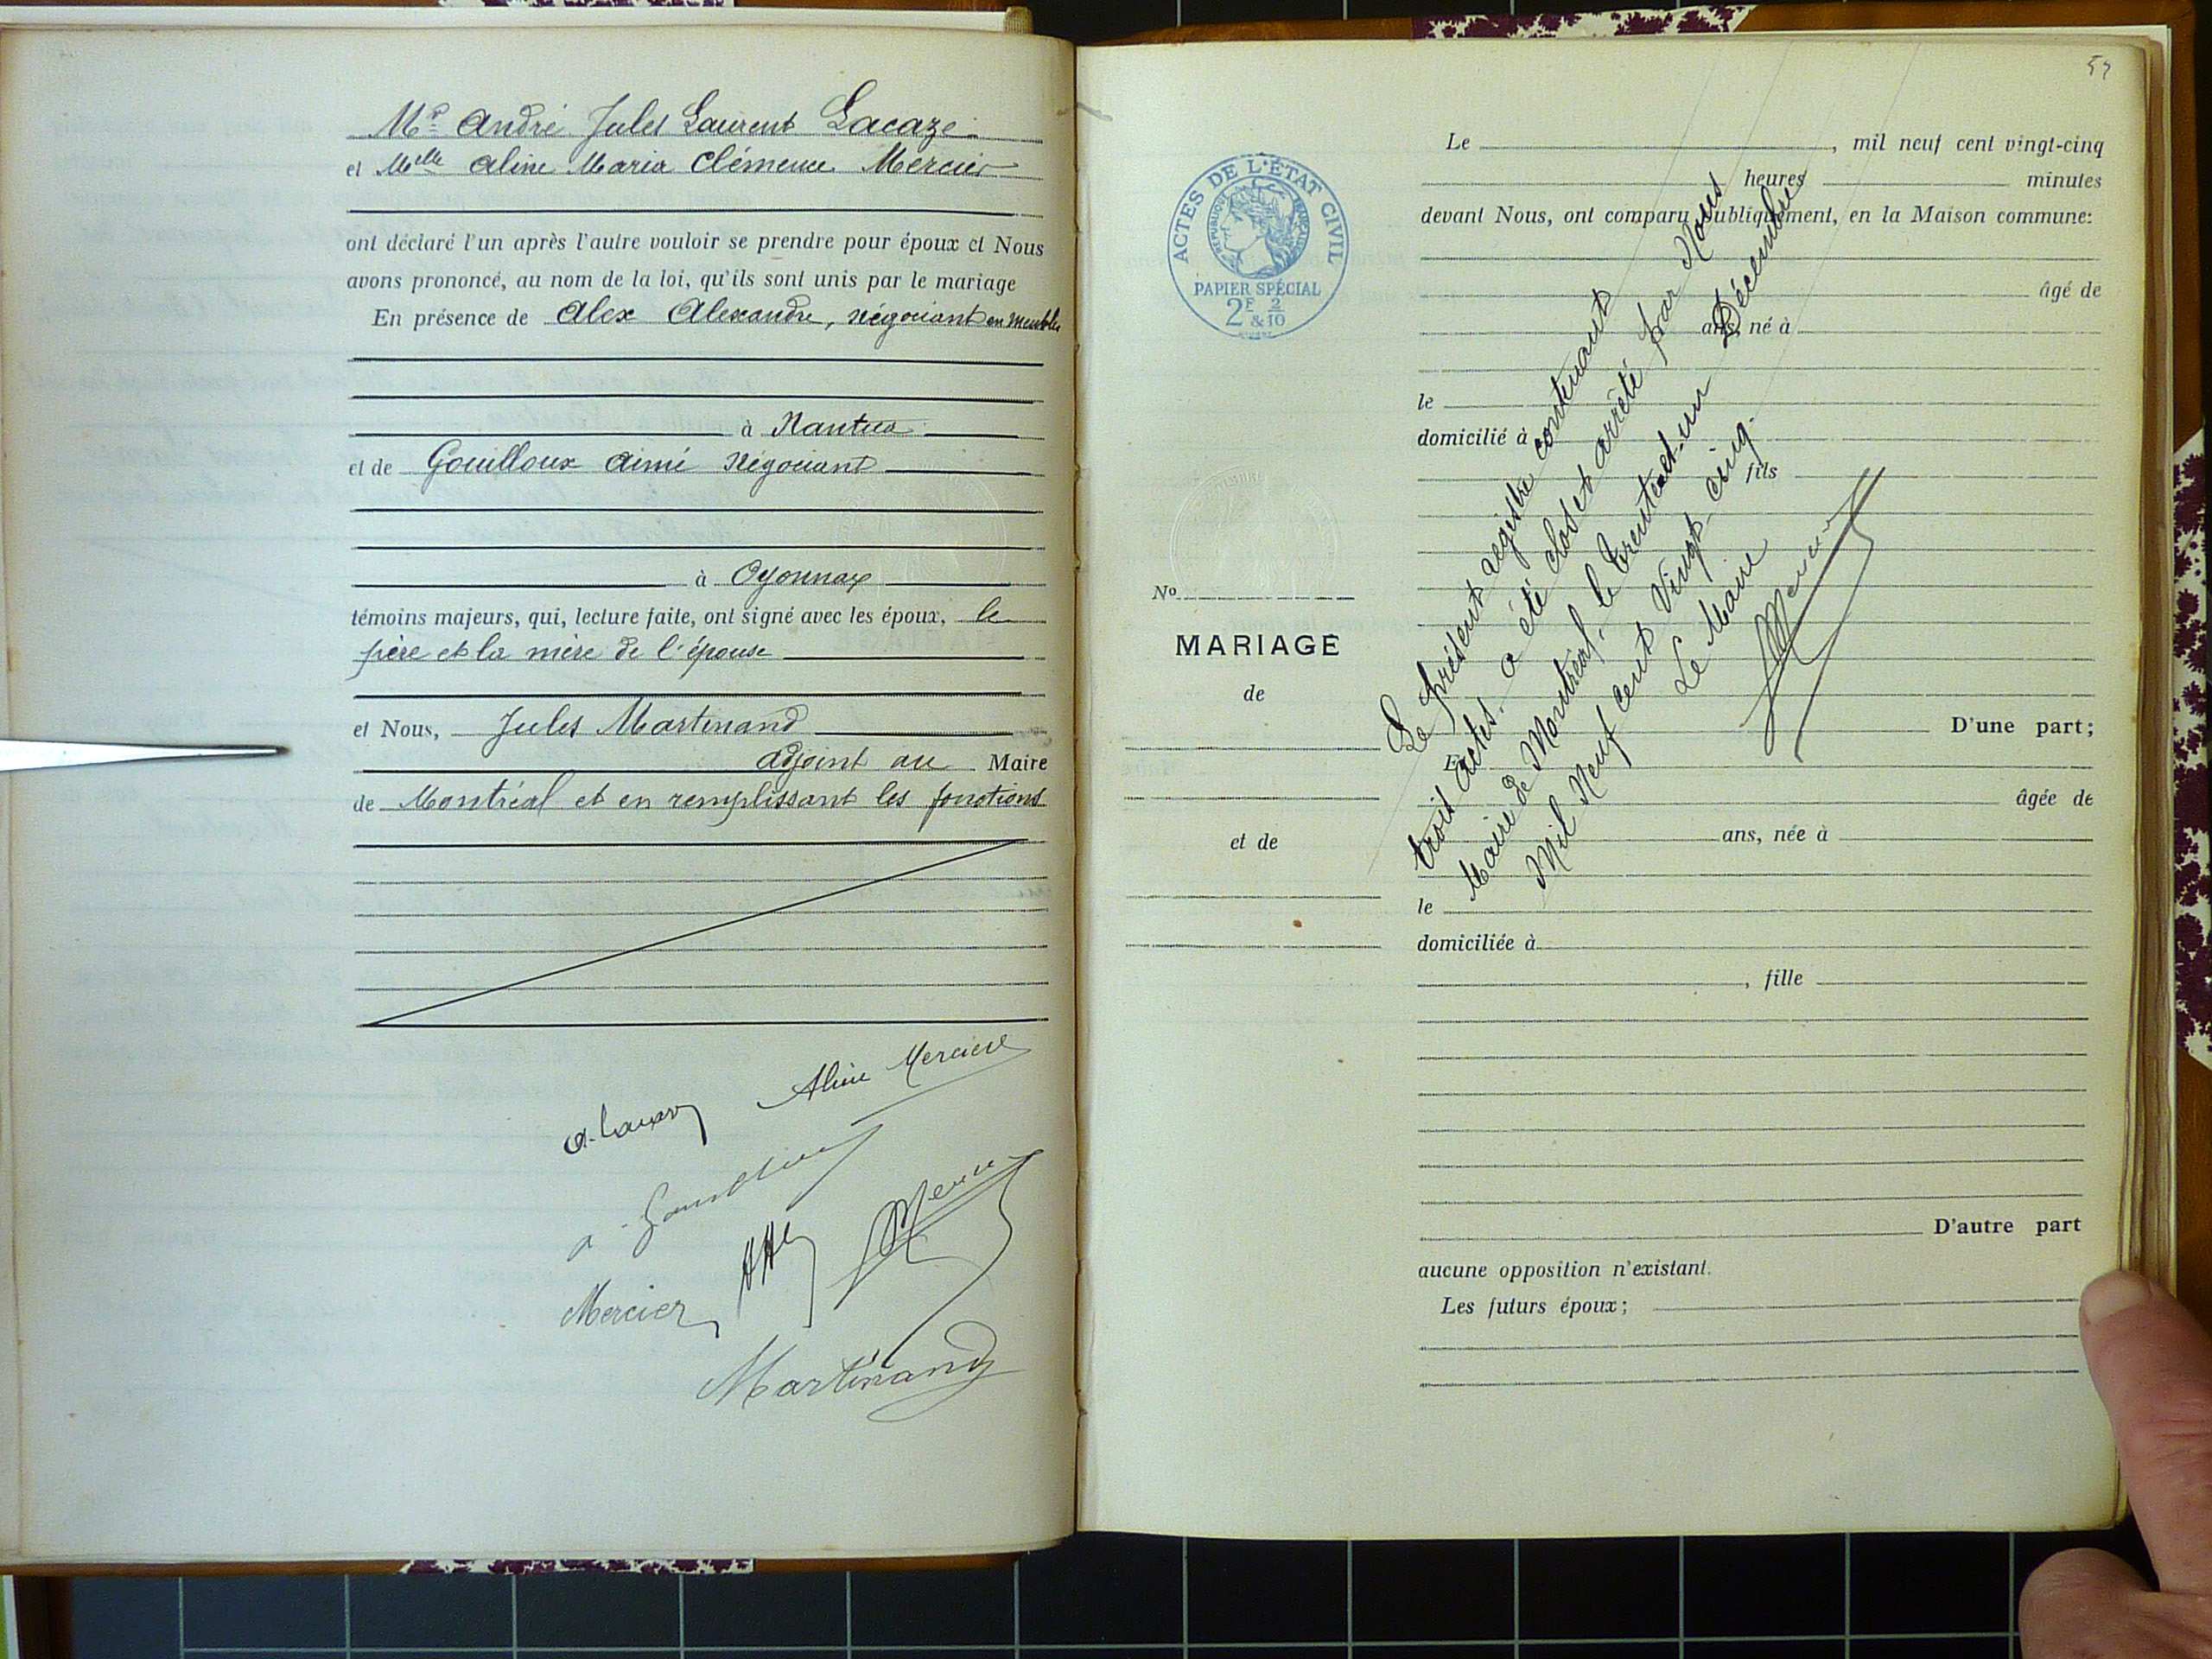 Mr André Jules Laurent Lacaze
et Melle Aline Maria Clémence Mercier
ont déclaré l'un après l'autre vouloir se prendre pour époux et Nous
avons prononcé, au nom de la loi, qu'ils sont unis par le mariage
En présence de Alex Alexandre, négociant en meubles
à Nantua
et de Gouilloux Aimé Négociant
à Oyonnax
témoins majeurs, qui, lecture faite, ont signé avec les époux, le
père et la mère de l'épouse
et Nous, Jules Martinand
adjoint au Maire
de Montréal et en remplissant les fonctions
Aline Mercier
a. Lacaze
a. Gouilloux
Mercier
Martinand
57
ACTES DE L'ÉTAT CIVIL
RÉPUBLIQUE FRANÇAISE
PAPIER SPÉCIAL
2F & 2/10
No
MARIAGE
de
et de
Le , mil neuf cent vingt-cinq
heures minutes
devant Nous, ont comparu publiquement, en la Maison commune:
âgé de
ans, né à
le
domicilié à
fils
D'une part;
Et
âgée de
ans, née à
le
domiciliée à
, fille
D'autre part
aucune opposition n'existant.
Les futurs époux;
Le présent registre contenant
trois actes, a été clos et arrêté par Nous
Maire de Montréal, le trente-et-un Décembre
Mil Neuf Cent Vingt-cinq.
Le Maire
Mercier